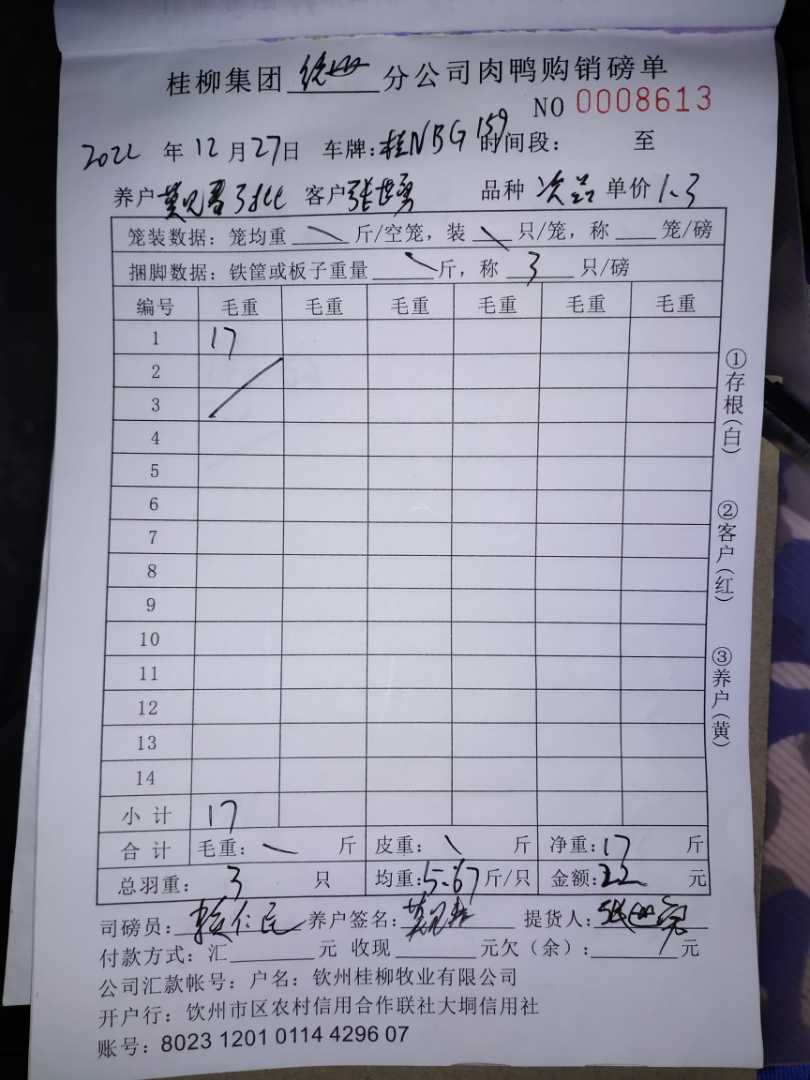 桂柳集团 分公司肉鸭购销磅单
NO 0008613
2022 年 12 月 27 日 车牌:桂NBG 159 时间段: 至
养户 莫见 客户 张世勇 品种 次品 单价 1.3
笼装数据:笼均重 \ 斤/空笼,装 \ 只/笼,称 笼/磅
捆脚数据:铁筐或板子重量 \ 斤,称 3 只/磅
编号 毛重 毛重 毛重 毛重 毛重 毛重
1 17
2
3
4
5
6
7
8
9
10
11
12
13
14
小 计 17
合 计 毛重: \ 斤 皮重: \ 斤 净重:17 斤
总羽重: 3 只 均重:5.67 斤/只 金额:22 元
司磅员: 仁民 养户签名: 莫见 提货人: 张世
付款方式:汇 元 收现 元欠(余): 元
公司汇款帐号:户名:钦州桂柳牧业有限公司
开户行:钦州市区农村信用合作联社大垌信用社
账号:8023 1201 0114 4296 07
①存根(白)
②客户(红)
③养户(黄)